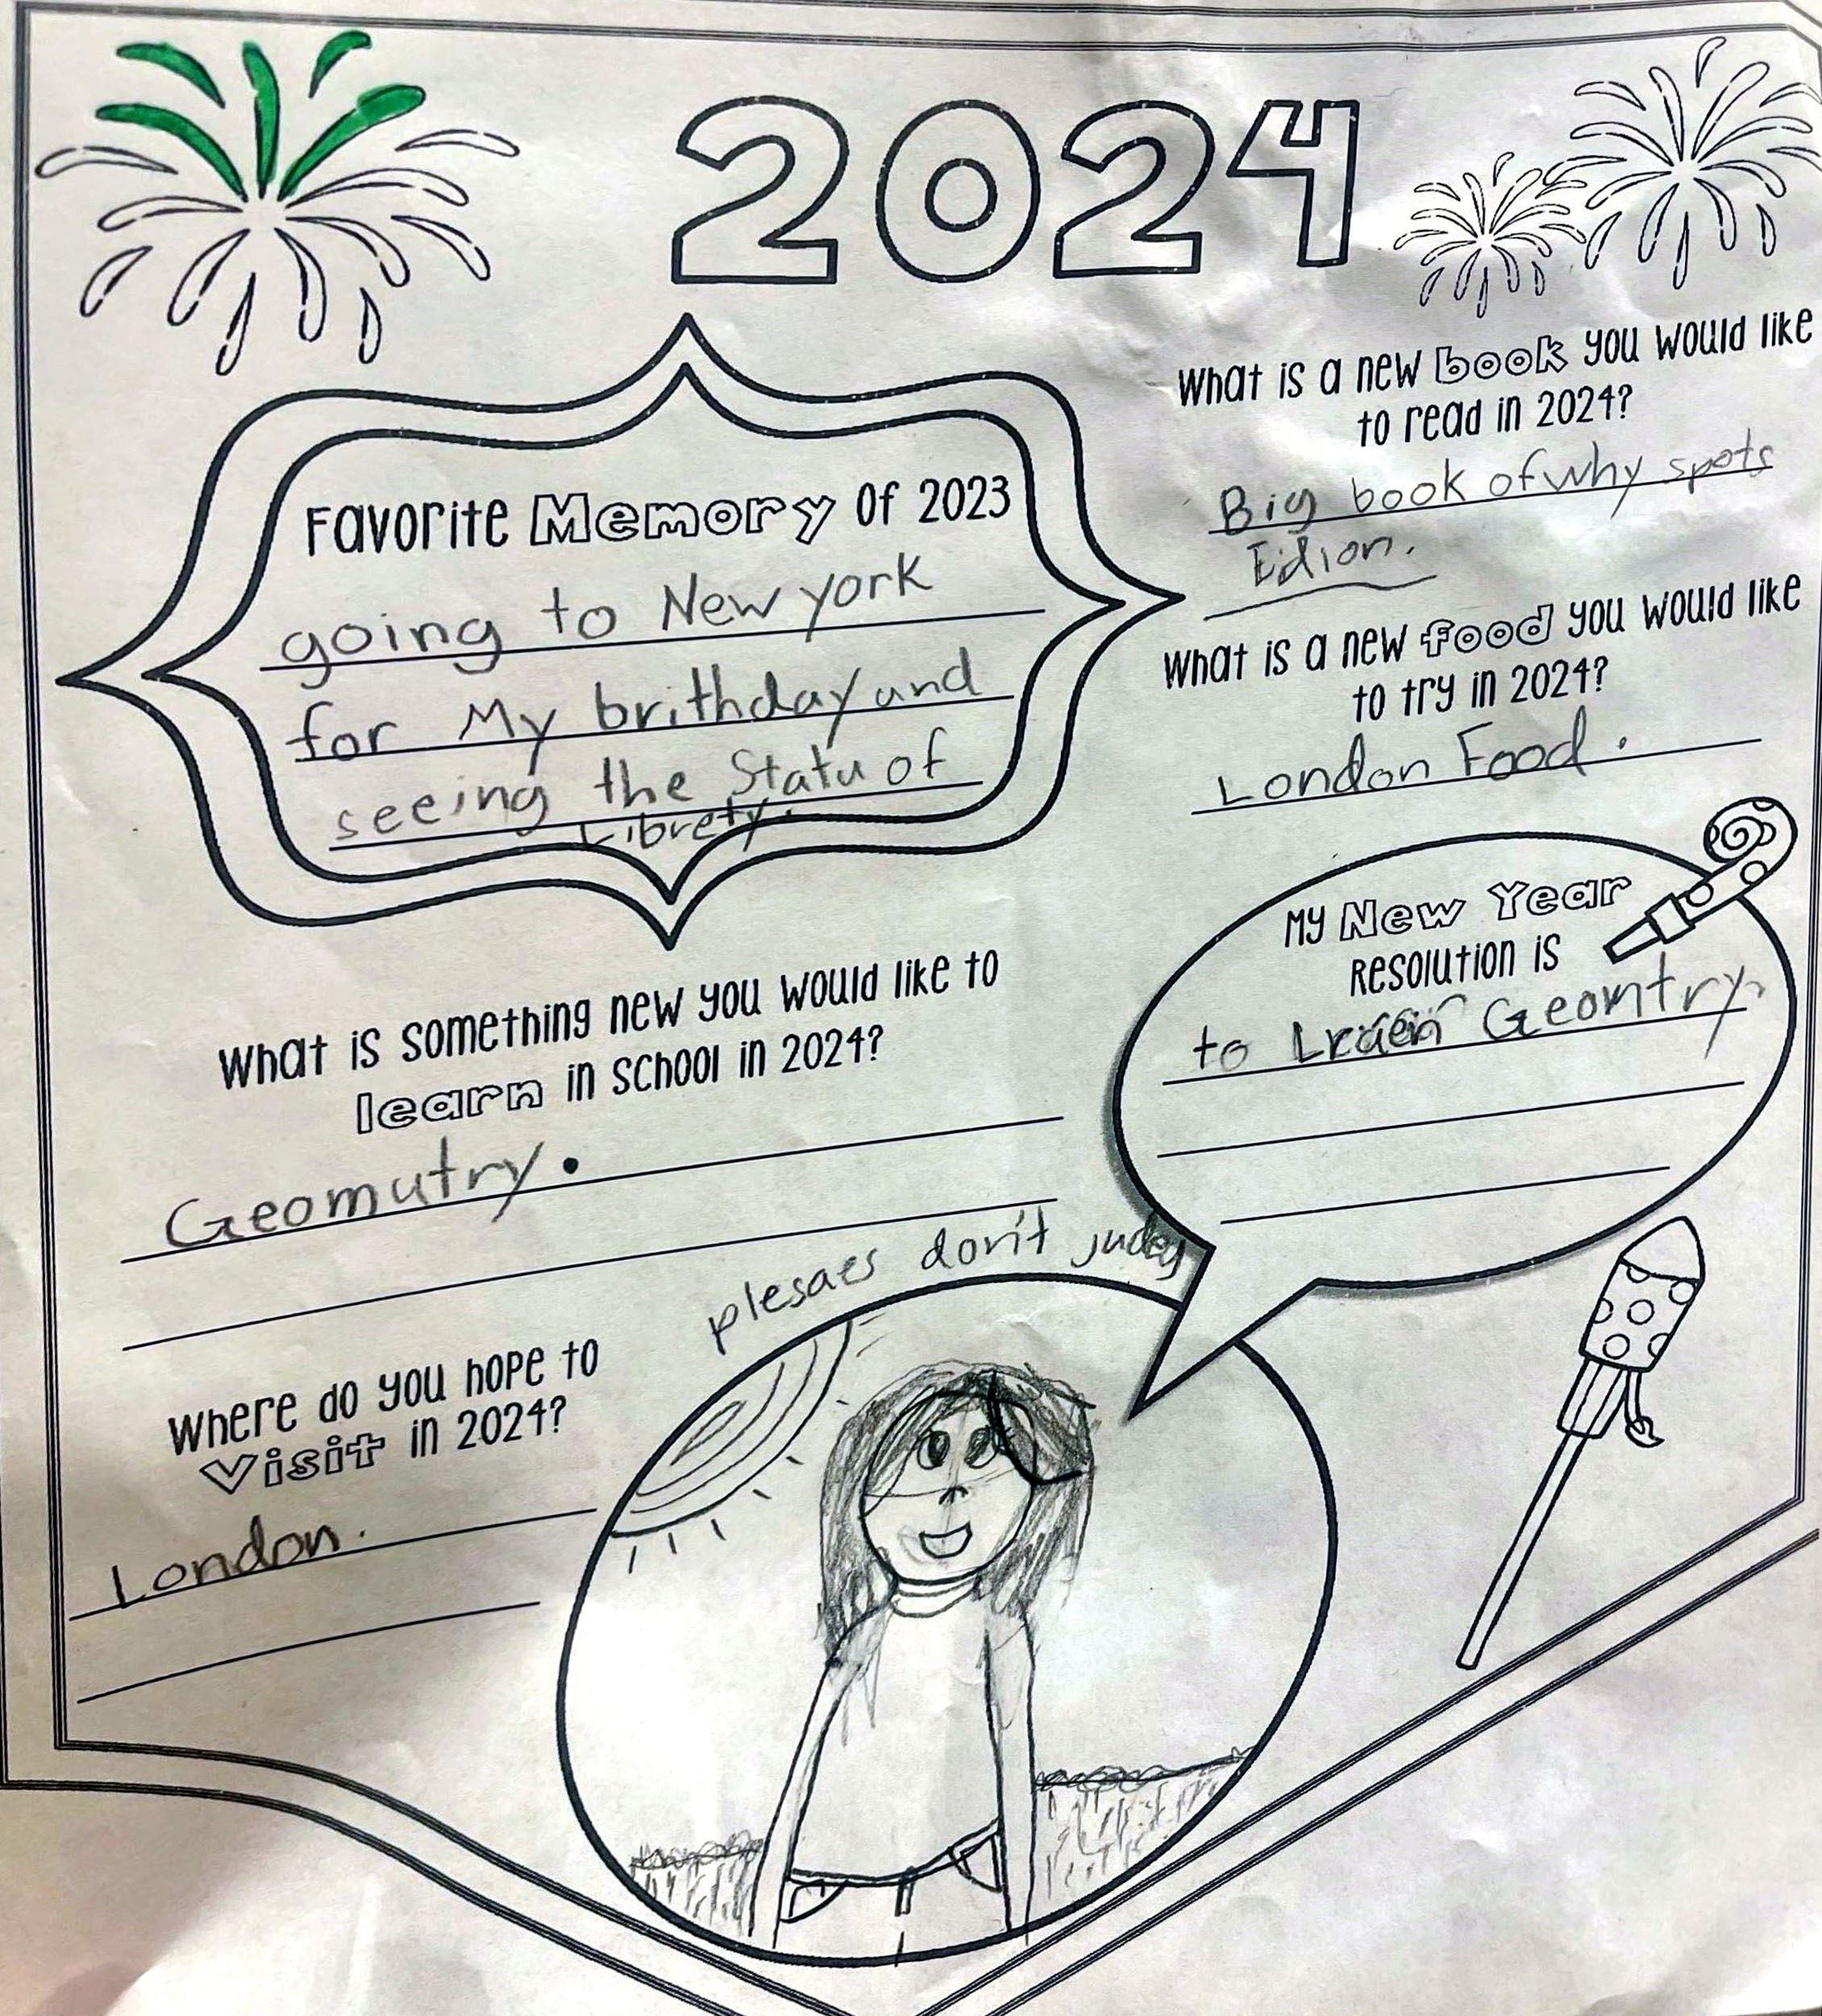 2024
Favorite Memory Of 2023
going to New york
for My brithday and
seeing the Statu of
Librety.
What is a new book you would like
to read in 2024?
Big book of why spots
Edion.
What is a new food you would like
to try in 2024?
London Food.
My New Year
Resolution is
to Geomtry.
What is something new you would like to
learn in school in 2024?
Geomutry.
plesaes don't judey
Where do you hope to
Visit in 2024?
London.